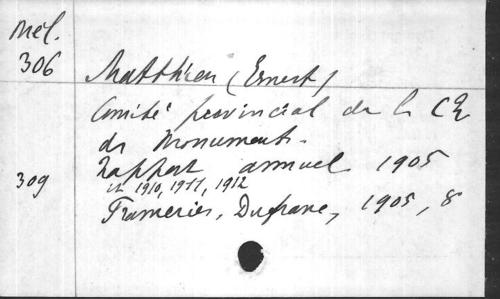 Mél.
306
Matthieu (Ernest)
Comité provincial de la
des Monuments.
Rapport annuel 1905
309
et 1910, 1911, 1912
Frameries, Dufrane, 1905, 8